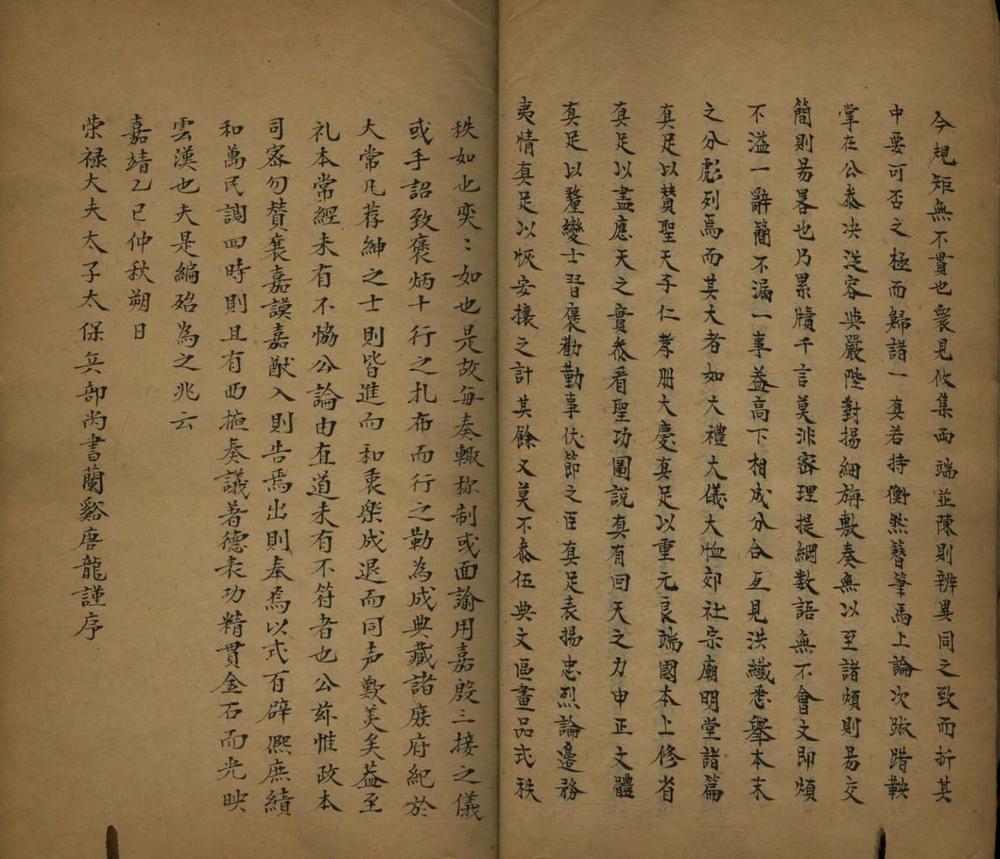 今規矩無不貫也衆見攸集兩端並陳則辨異同之致而折其
中要可否之極而歸諸一真若持衡然簪筆馬上論次躐踏鞅
掌在公叅决從容與嚴陛對揚細旃敷奏無以至諸煩則易交
簡則易畧也乃累牘千言莫非審理提綱数語無不會文即煩
不溢一辭簡不漏一事益高下相成分合互見洪纖悉舉本末
之分彪列焉而其大者如大禮大儀大恤郊社宗廟明堂諸篇
真足以賛聖天子仁孝冊大慶真足以重元良端國本上修省
真足以盡應天之實叅看聖功圖說真有回天之力申正文體
真足以釐變士習褒勸勤事伏節之臣真足表揚忠烈論邊務
夷情真足以恢安攘之計其餘又莫不叅伍典文區畫品式秩
秩如也奕：如也是故每奏輙称制或面諭用嘉殷三接之儀
或手詔致褒炳十行之扎布而行之勒為成典藏諸廢府紀於
大常凡荐紳之士則皆進而和衷樂成退而同声歎美矣葢至
礼本常經未有不恊公論由直道未有不符者也公茲惟政本
司密勿賛襄嘉謨嘉猷入則告焉出則奉為以式百辟熈庶績
和萬民調四時則且有西掖奏議著德表功精貫金石而光映
雲漢也夫是編殆為之兆云
嘉靖乙巳仲秋朔日
荣禄大夫太子太保兵部尚書蘭谿唐龍謹序